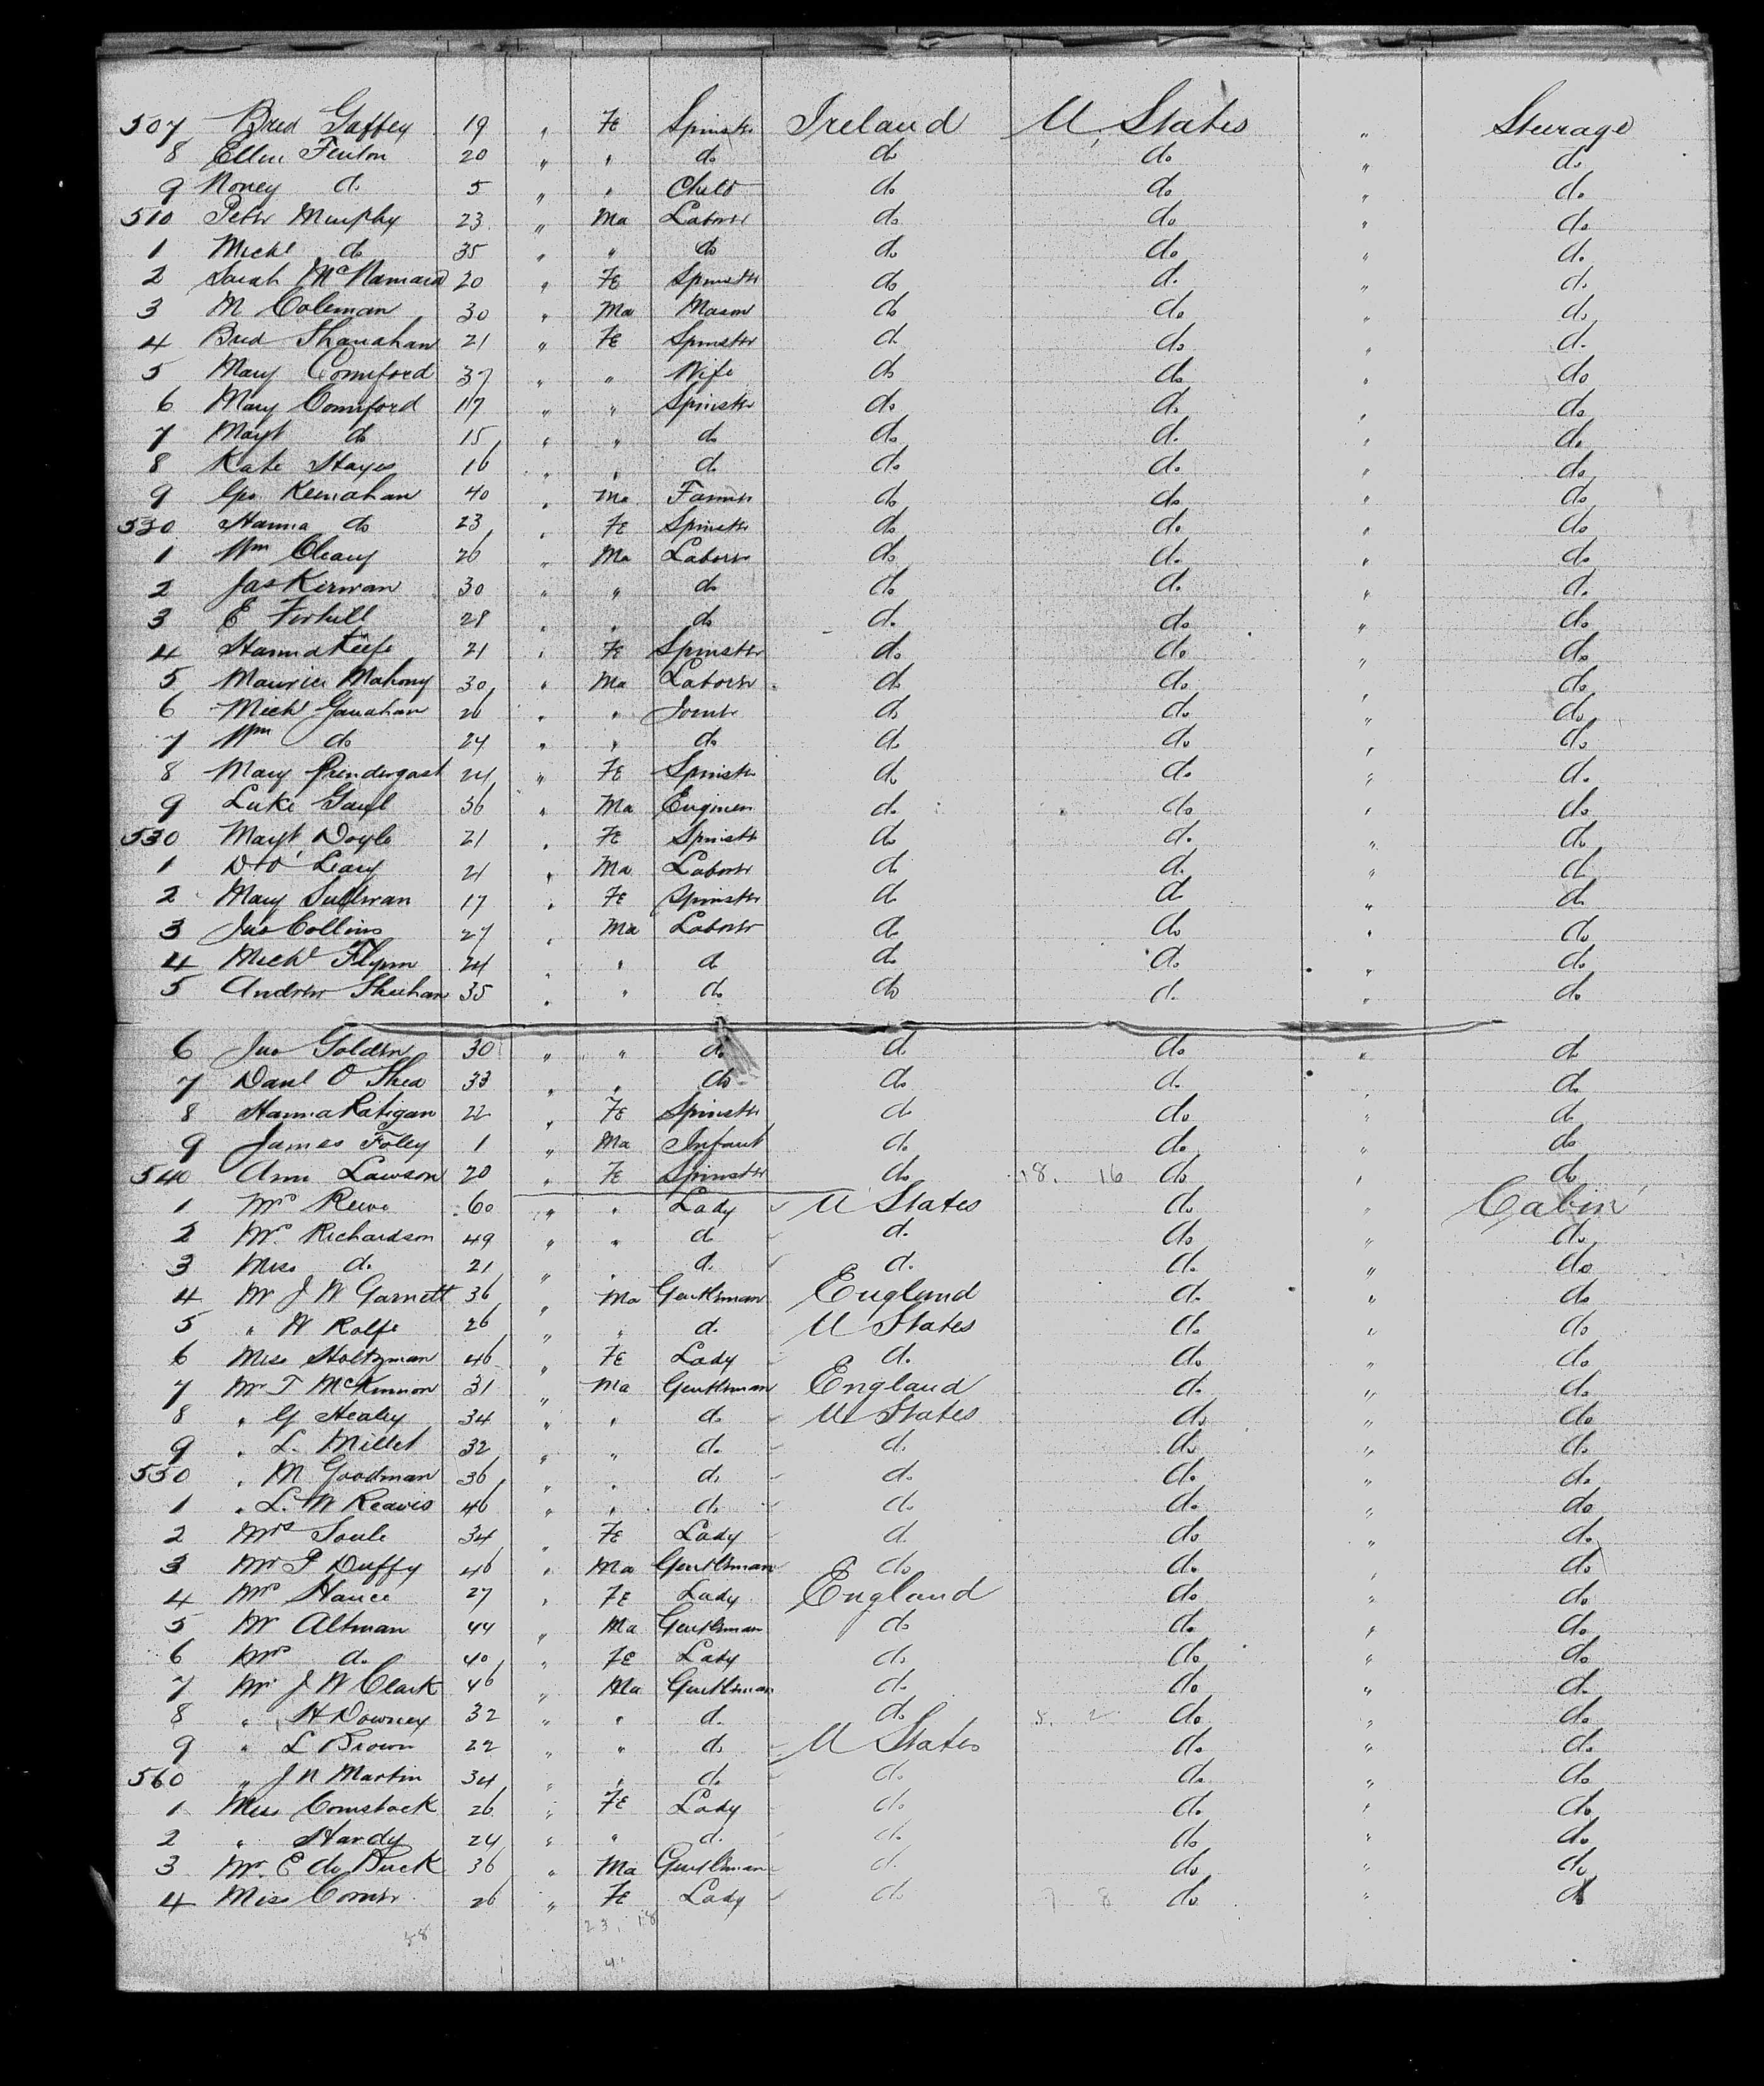 507 Brid Gaffey 19 " Fe Spinster Ireland U States " Steerage
8 Ellen Fenton 20 " " do do do " do
9 Noney do 5 " " Child do do " do
510 Peter Murphy 23 " Ma Laborer do do " do
1 Michl do 35 " " do do do " do
2 Sarah McNamara 20 " Fe Spinster do do " do
3 M Coleman 30 " Ma Mason do do " do
4 Brid Shanahan 21 " Fe Spinster do do " do
5 Mary Comiford 37 " " Wife do do " do
6 Mary Comiford 17 " " Spinster do do " do
7 Magt do 15 " " do do do " do
8 Kate Hayes 16 " " do do do " do
9 Keenahan 40 " Ma Farmer do do " do
520 Hanna do 23 " Fe Spinster do do " do
1 Wm Cleary 26 " Ma Laborer do do " do
2 Jas Kirwan 30 " " do do do " do
3 E 28 " " do do do " do
4 Hanna Keefe 21 " Fe Spinster do do " do
5 Maurice Mahony 30 " Ma Laborer do do " do
6 Michl Ganahan 26 " " Joiner do do " do
7 Wm do 24 " " do do do " do
8 Mary Prendergast 24 " Fe Spinster do do " do
9 Luke Gaul 36 " Ma Engineer do do " do
530 Magt Doyle 21 " Fe Spinster do do " do
1 D O'Leary 21 " Ma Laborer do do " do
2 Mary Sullivan 17 " Fe Spinster do do " do
3 Jno Collins 27 " Ma Laborer do do " do
4 Michl Flynn 24 " " do do do " do
5 Andrew Sheehan 35 " " do do do " do
6 Jno Golden 30 " " do do do " do
7 Danl O Shea 33 " " do do do " do
8 Hanna Ratigan 22 " Fe Spinster do do " do
9 James Foley 1 " Ma Infant do do " do
540 Ann Lawson 20 " Fe Spinster do 18. 16 do " do
1 Mrs 60 " " Lady U States do " Cabin
2 Mrs Richardson 49 " " do do do " do
3 Miss do 21 " " do do do " do
4 Mr J W Garnett 36 " Ma Gentleman England do " do
5 " W Rolfe 26 " " do U States do " do
6 Miss Holtzman 46 " Fe Lady do do " do
7 Mr T McKinnon 31 " Ma Gentleman England do " do
8 " G Healey 34 " " do U States do " do
9 " L. Millet 32 " " do do do " do
550 " M Goodman 36 " " do do do " do
1 " L. W Reavis 46 " " do do do " do
2 Mrs Soule 34 " Fe Lady do do " do
3 Mr P Duffy 46 " Ma Gentleman do do " do
4 Mrs Hance 27 " Fe Lady England do " do
5 Mr Altman 44 " Ma Gentleman do do " do
6 Mrs do 40 " Fe Lady do do " do
7 Mr J W Clark 46 " Ma Gentleman do do " do
8 " H Downey 32 " " do do 5. 2 do " do
9 " L Brown 22 " " do U States do " do
560 " J N Martin 34 " " do do do " do
1 Miss Comstock 26 " Fe Lady do do " do
2 " Hardy 24 " " do do do " do
3 Mr. E de Buck 36 " Ma Gentleman do do " do
4 Miss 26 " Fe Lady do 7 8 do " do
58 23, 18
41